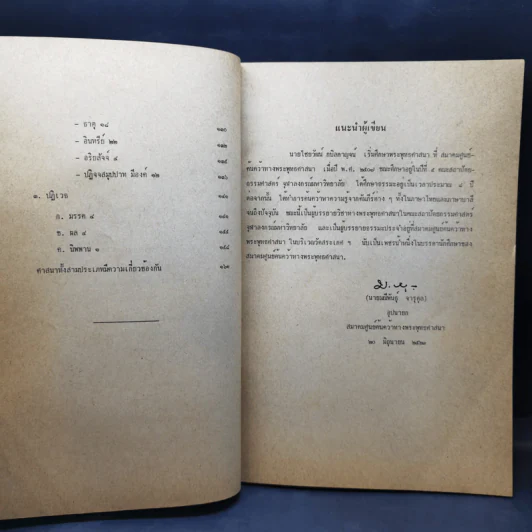 - ธาตุ ๑๘
- อินทรีย์ ๒๒
- อริยสัจจ์ ๔
- ปฏิจจสมุปปาท มีองค์ ๑๒
๓. ปฏิเวธ
ก. มรรค ๔
ข. ผล ๔
ค. นิพพาน ๑
ศาสนาทั้งสามประเภทมีความเกี่ยวข้องกัน
แนะนำผู้เขียน
นายไชยวัฒน์ กปิลกาญจน์ เริ่มศึกษาพระพุทธศาสนา ที่ สมาคมศูนย์-
ค้นคว้าทางพระพุทธศาสนา เมื่อปี พ.ศ. ขณะศึกษาอยู่ในปีที่ ๕ คณะสถาปัตย-
กรรมศาสตร์ จุฬาลงกรณ์มหาวิทยาลัย ได้ศึกษาธรรมะอยู่เป็นเวลาประมาณ ๙ ปี
ต่อจากนั้น ได้ทำการค้นคว้าหาความรู้จากคัมภีร์ต่าง ๆ ทั้งในภาษาไทยและภาษาบาลี
จนถึงปัจจุบัน ขณะนี้เป็นผู้บรรยายวิชาทางพระพุทธศาสนาในคณะสถาปัตยกรรมศาสตร์
จุฬาลงกรณ์มหาวิทยาลัย และเป็นผู้บรรยายธรรมแปรงจำอยู่ที่สมาคมศูนย์ค้นคว้าทาง
พระพุทธศาสนา ในบริเวณวัดสระเกศ ฯ นับเป็นเพชรน้ำหนึ่งในบรรดานักศึกษาของ
สมาคมศูนย์ค้นคว้าทางพระพุทธศาสนา.
จารุกุล)
อุปนายก
สมาคมศูนย์ค้นคว้าทางพระพุทธศาสนา
๒๐ มิถุนายน ๒๕๒๐